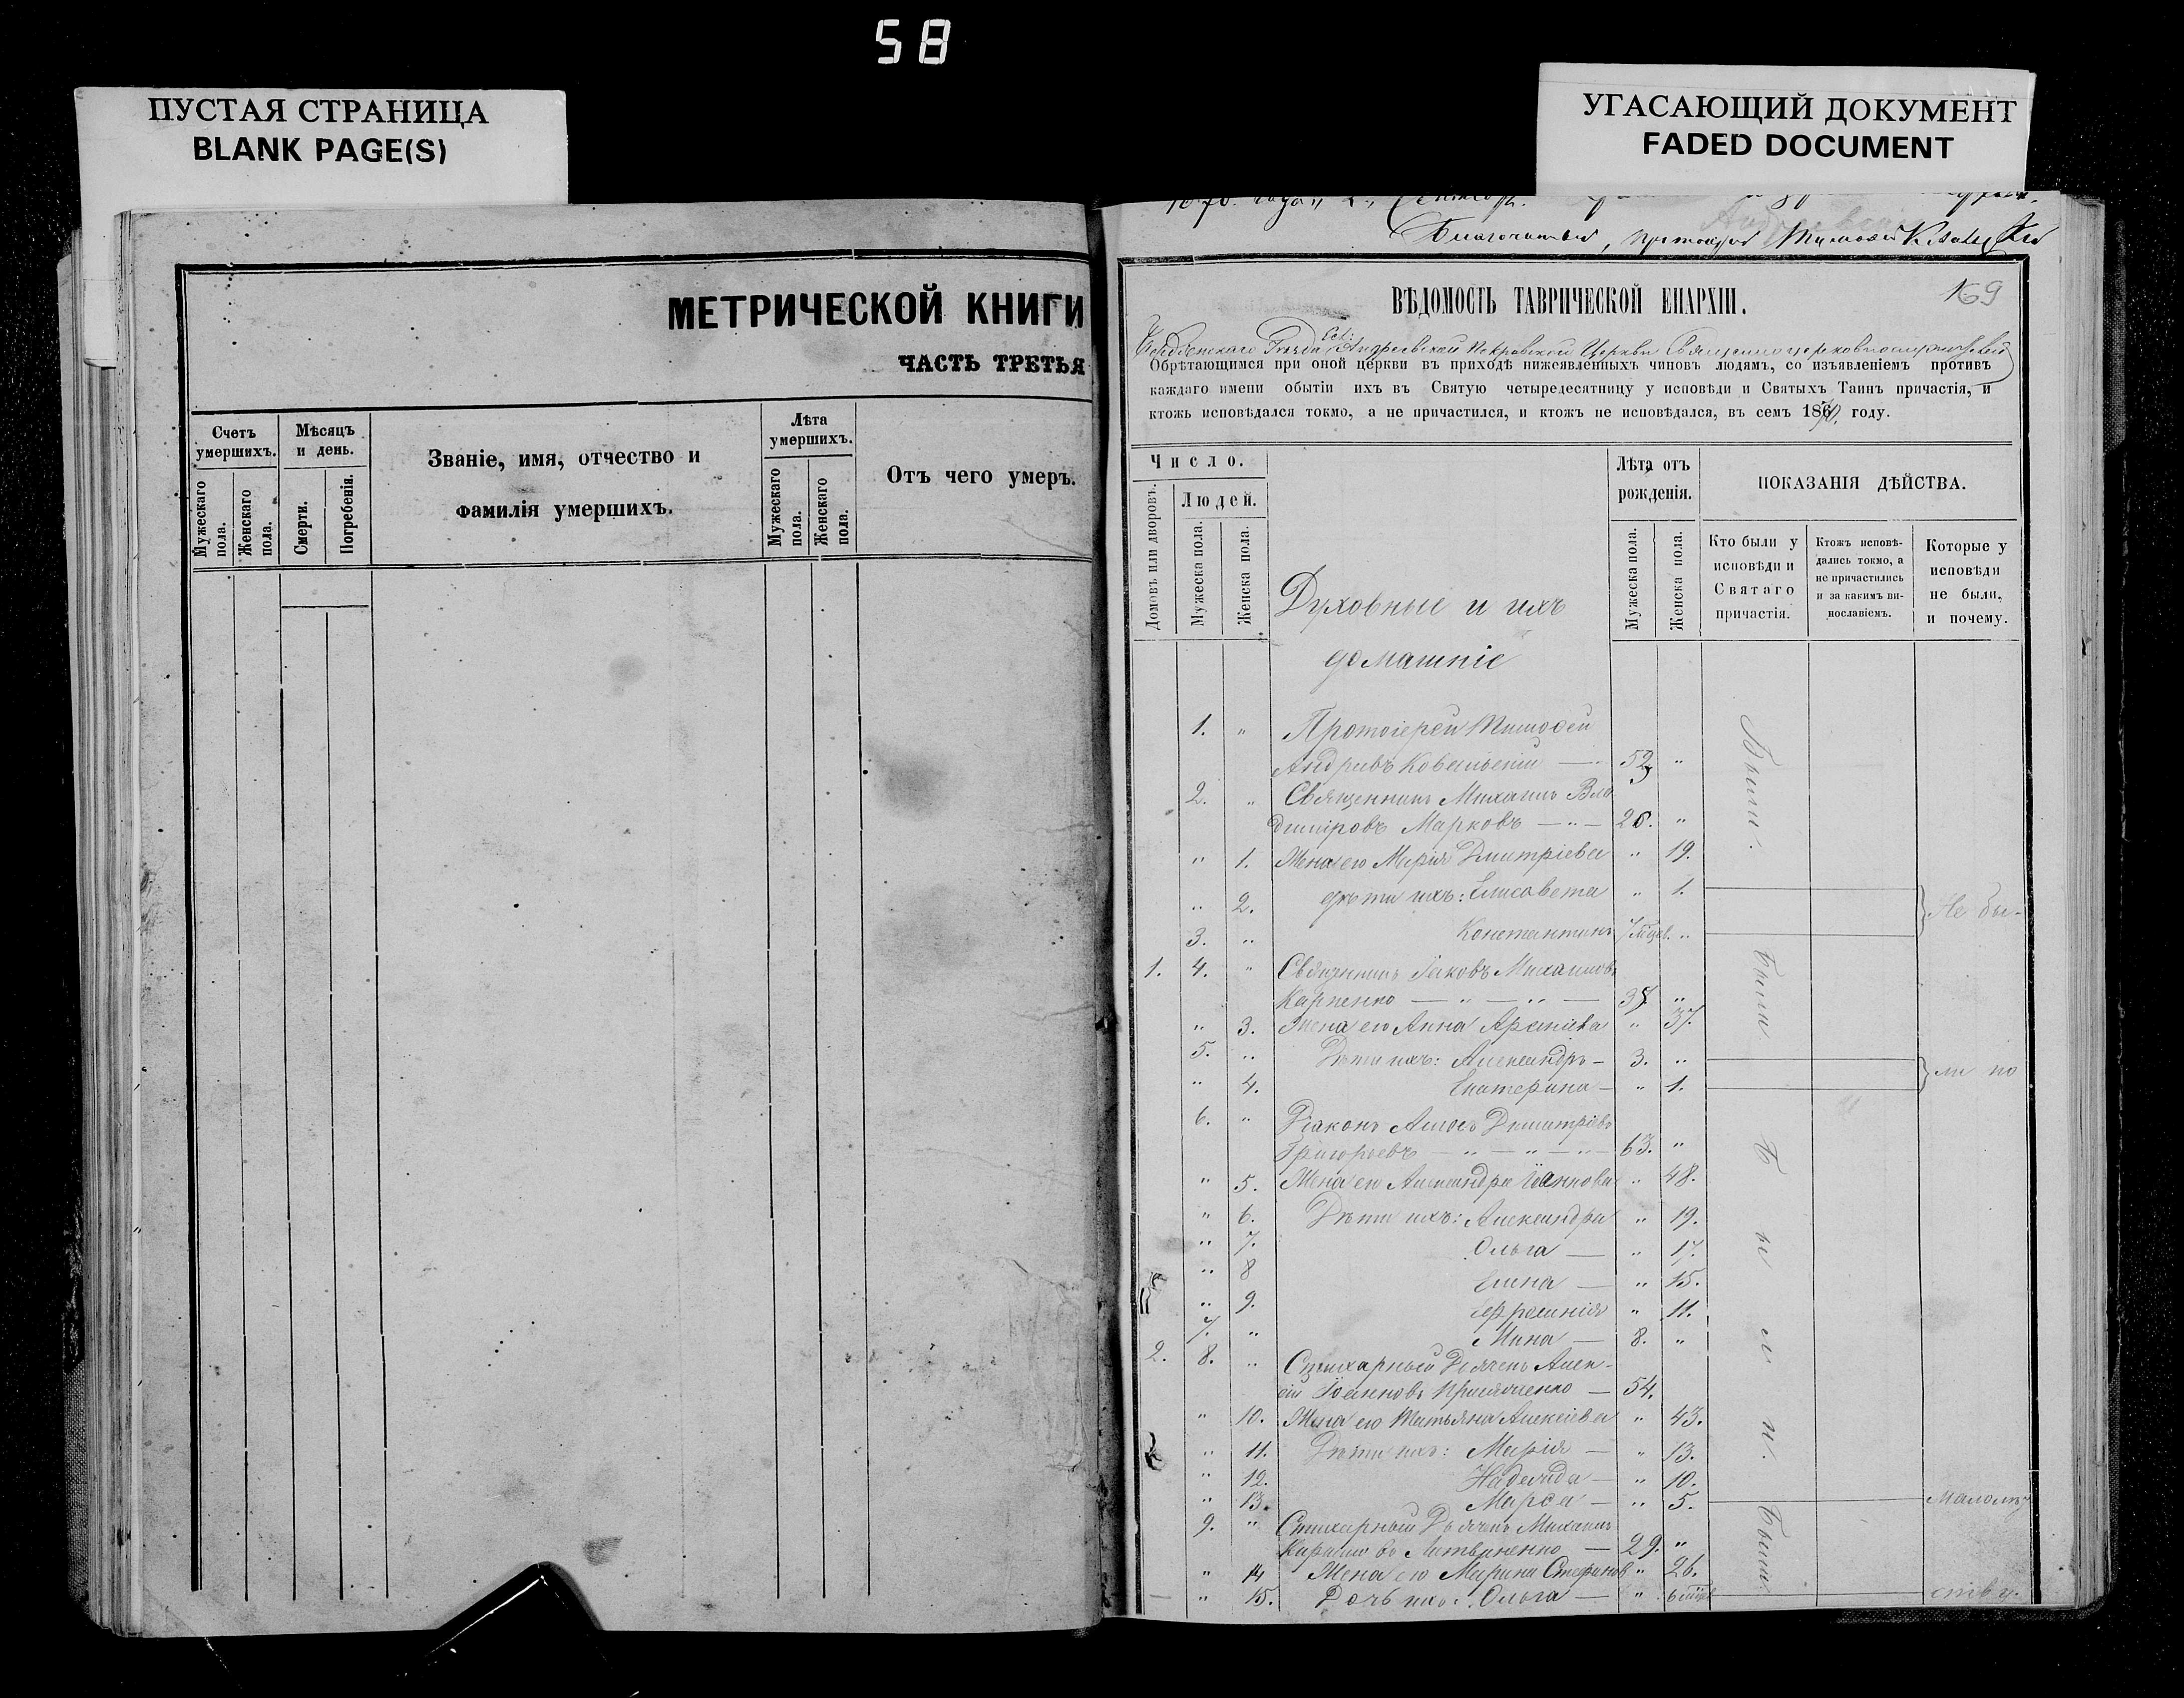 58
ПУСТАЯ СТРАНИЦА
BLANK PAGE(S)
УГАСАЮЩИЙ ДОКУМЕНТ
FADED DOCUMENT
МЕТРИЧЕСКОЙ КНИГИ
ЧАСТЬ ТРЕТЬЯ
Счетъ умершихъ.
Мужескаго пола.
Женскаго пола.
Мѣсяцъ и день.
Смерти.
Погребенія.
Званіе, имя, отчество и
фамилія умершихъ.
Лѣта умершихъ.
Мужескаго пола.
Женскаго пола.
Отъ чего умеръ.
1870. года
Благочинный, протоіерей Тимоѳей
169
ВѢДОМОСТЬ ТАВРИЧЕСКОЙ ЕПАРХІИ.
Покровской Церкви
Обрѣтающимся при оной церкви въ приходѣ нижеявленныхъ чиновъ людямъ, со изъявленіемъ противъ
каждаго имени обытіи ихъ въ Святую четыредесятницу у исповѣди и Святыхъ Таинъ причастія, и
ктожъ исповѣдался токмо, а не причастился, и ктожъ не исповѣдался, въ семъ 1870 году.
Число.
Домовъ или дворовъ.
Людей.
Мужеска пола.
Женска пола.
Духовные и ихъ
домашніе
Лѣта отъ рожденія.
Мужеска пола.
Женска пола.
ПОКАЗАНІЯ ДѢЙСТВА.
Кто были у исповѣди и Святаго причастія.
Ктожъ исповѣдались токмо, а не причастились и за какимъ винославіемъ.
Которые у исповѣди не были, и почему.
1. " Протоіерей Тимоѳей
Андреевъ — "
2. " Священникъ Михаилъ Вла
диміровъ Марковъ — " — 26. "
" 1. Жена его Марія Димитріева " 19.
Были.
" 2. дѣти ихъ: Елисавета " 1.
Не бы-
3. " Константинъ "
1. 4. " Священникъ Іаковъ Михаиловъ
Карпенко — " — " — "
" 3. Жена его Анна " 37.
Были.
5. " Дѣти ихъ: Александръ — 3. "
" 4. Екатерина — " 1.
ли по
6. " Діаконъ Димитріевъ
Григорьевъ — " — " — " — 63. "
" 5. Жена его Александра Іоаннова " 48.
" 6. Дѣти ихъ: Александра " 19.
" 7. Ольга — " 17.
" 8 Елена — " 15.
" 9. " 11.
7. " Мина — 8. "
Были.
2. 8. " Стихарный Дьячекъ Алек-
сій Іоанновъ — 54.
" 10. Жена его Татьяна Алексіева " 43.
" 11. Дѣти ихъ: Марія — " 13.
" 12. Надежда — " 10.
" 13. Марѳа — " 5.
малолѣт
9. " Стихарный Дьячекъ Михаилъ
Литвиненко — 29. "
" 14 Жена его Марина Стефанов " 26.
Были.
" 15. Дочь ихъ: Ольга — "
ству.